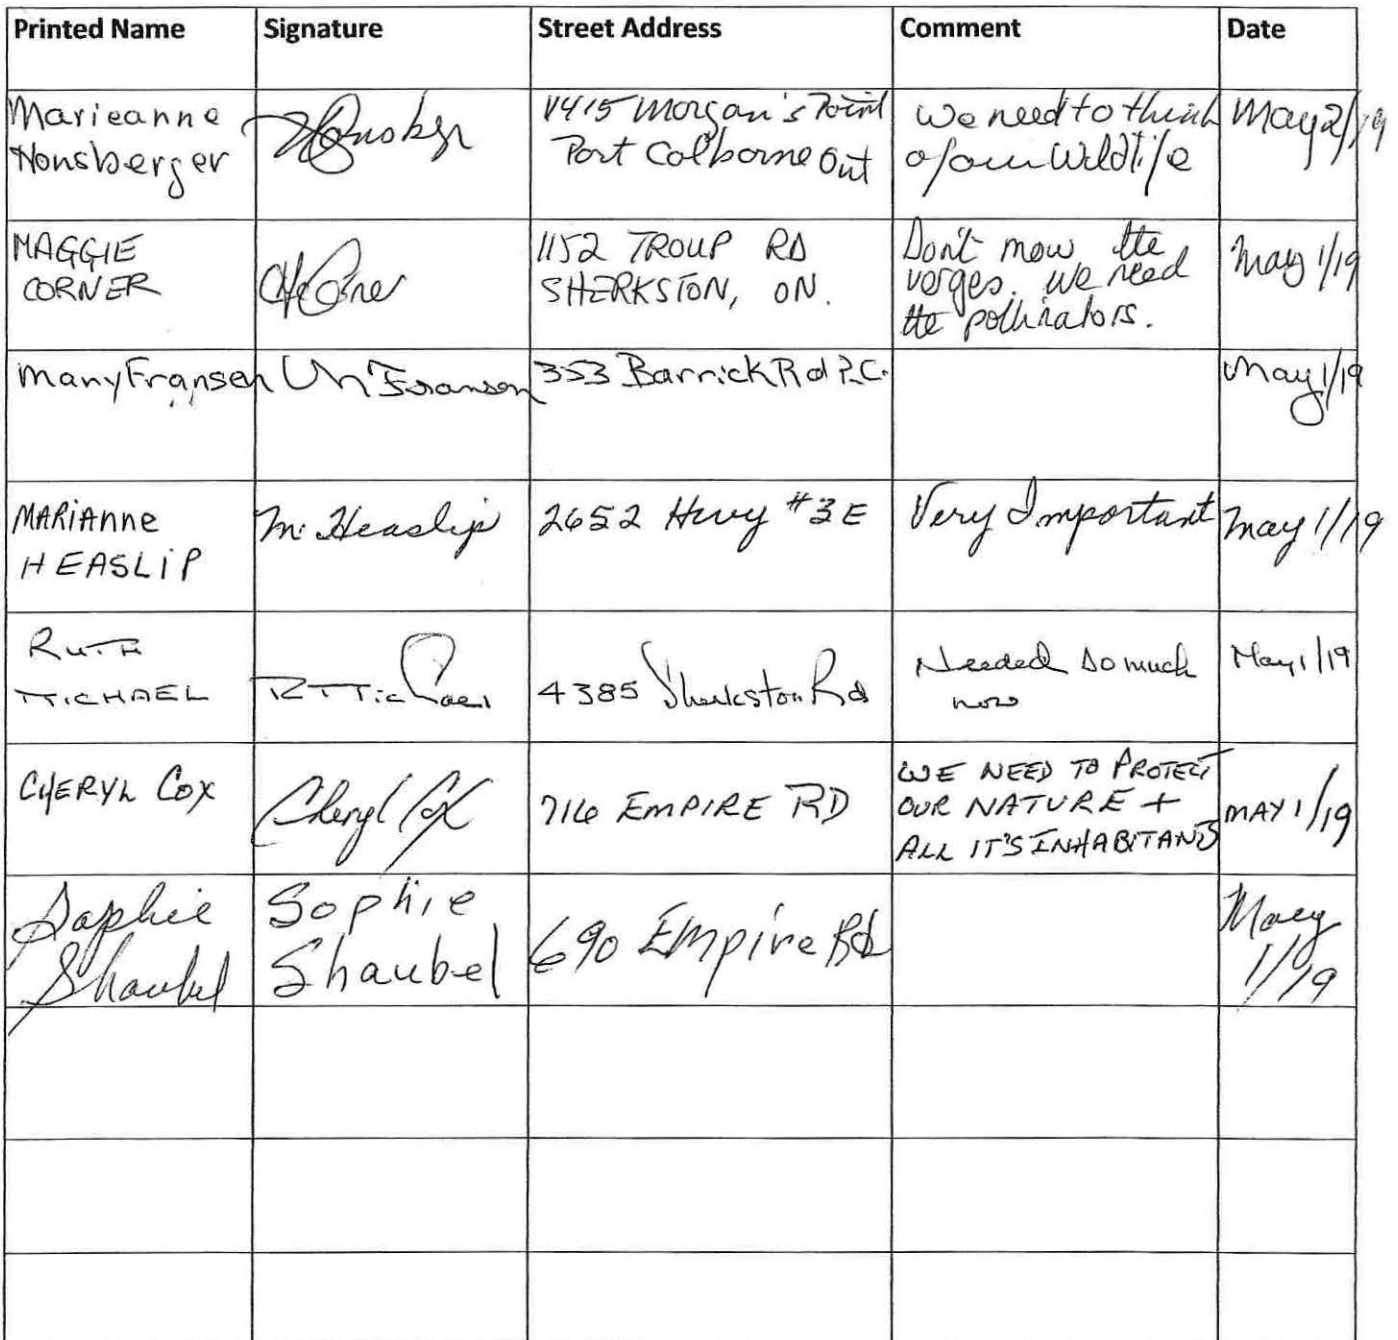 Printed Name Signature Street Address Comment Date
Marieanne
Honsberger
Morgan's Point
Port Colborne Ont
we need to think
of our Wildlife
May 2/19
MAGGIE
CORNER
1152 TROUP RD
SHERKSTON, ON.
Don't mow the
verges. we need
the pollinators.
May 1/19
Many Fransen M Fransen 353 Barrick Rd P.C. May 1/19
MARiAnne
HEASLiP
M. Heaslip 2652 Hwy #3 E Very Important May 1/19
RUTH
MICHAEL
R Michael 4385 Sherkston Rd
Needed so much
now
May 1/19
CHERYL COX Cheryl Cox 716 EMPIRE RD
WE NEED TO PROTECT
OUR NATURE +
ALL IT'S INHABITANTS
MAY 1/19
Sophie
Shaubel
Sophie
Shaubel
690 Empire Rd
May
1/19